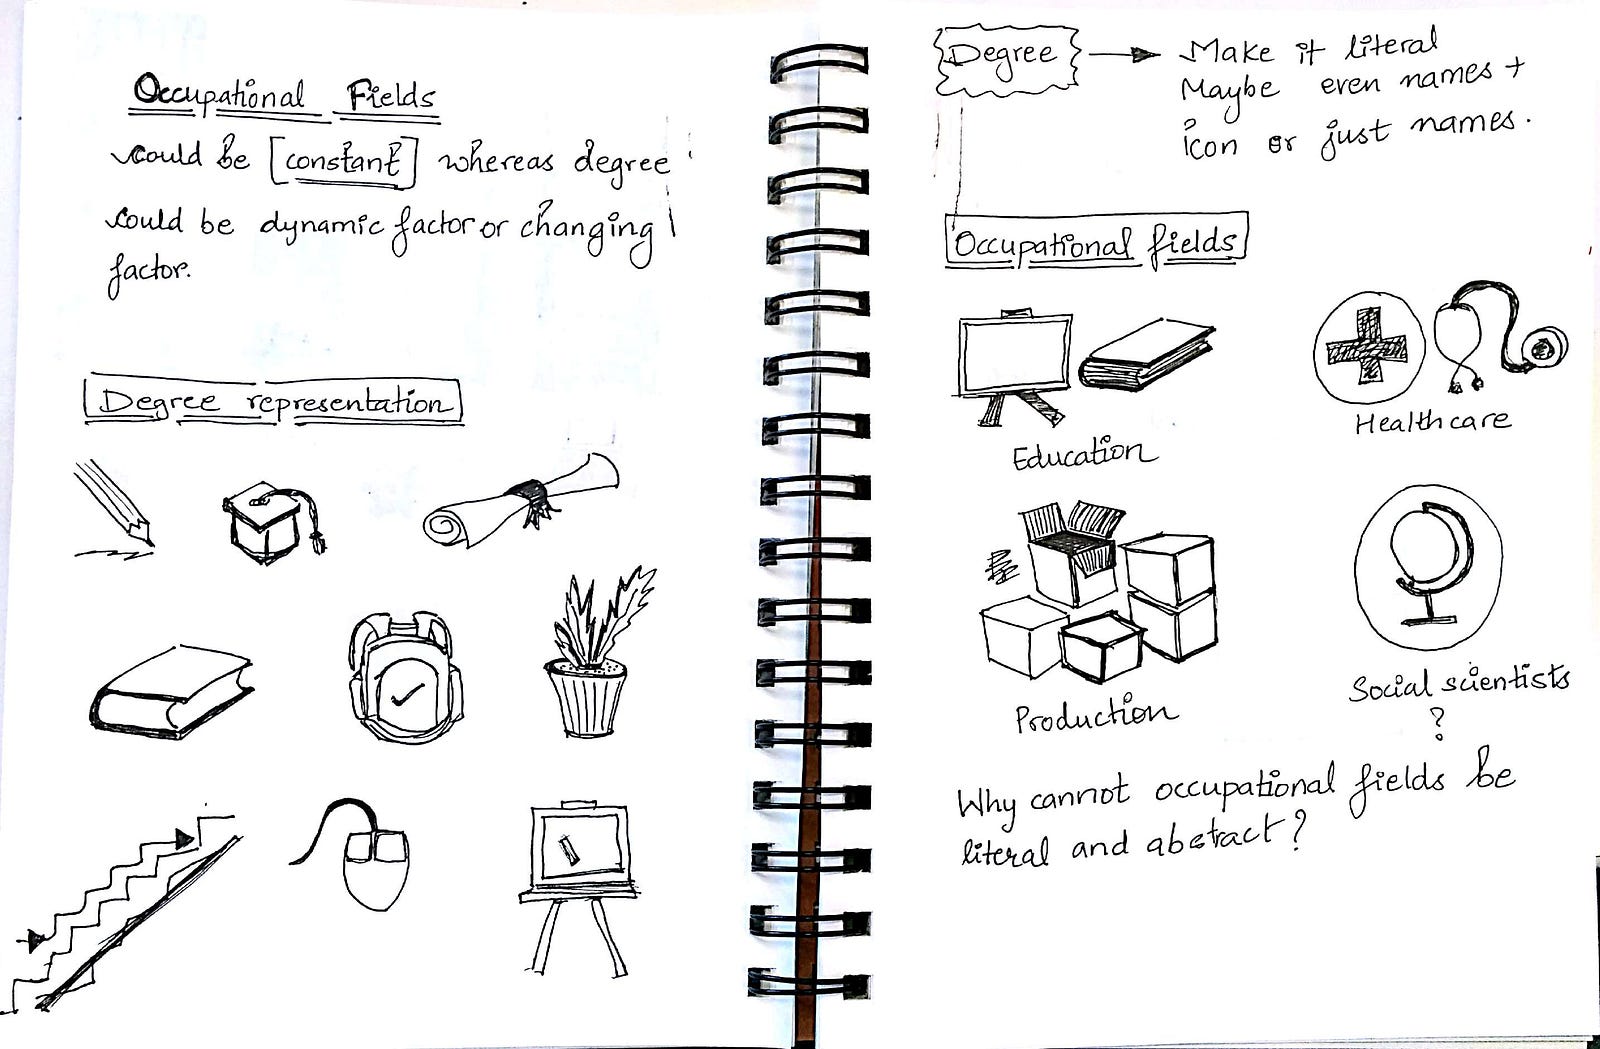 Occupational Fields
could be [constant] whereas degree
could be dynamic factor or changing
factor.
Degree representation
Degree → Make it literal
Maybe even names +
icon or just names.
Occupational fields
Education
Healthcare
Production
Social scientists
?
Why cannot occupational fields be
literal and abstract?